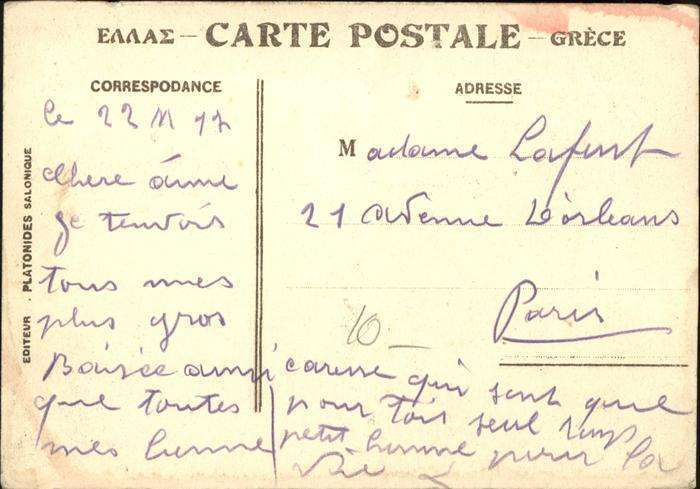 ΕΛΛΑΣ — CARTE POSTALE — GRÈCE
CORRESPODANCE
ADRESSE
EDITEUR . PLATONIDES SALONIQUE
le 22 M 17
chere amie
Je tenvois
tous mes
plus gros
Baisée aussi
que toutes
mes
Madame Lafont
21 avenue D'orleans
Paris
10 —
caresse qui sont que
pour toit seul
petit homme pour la
Vie